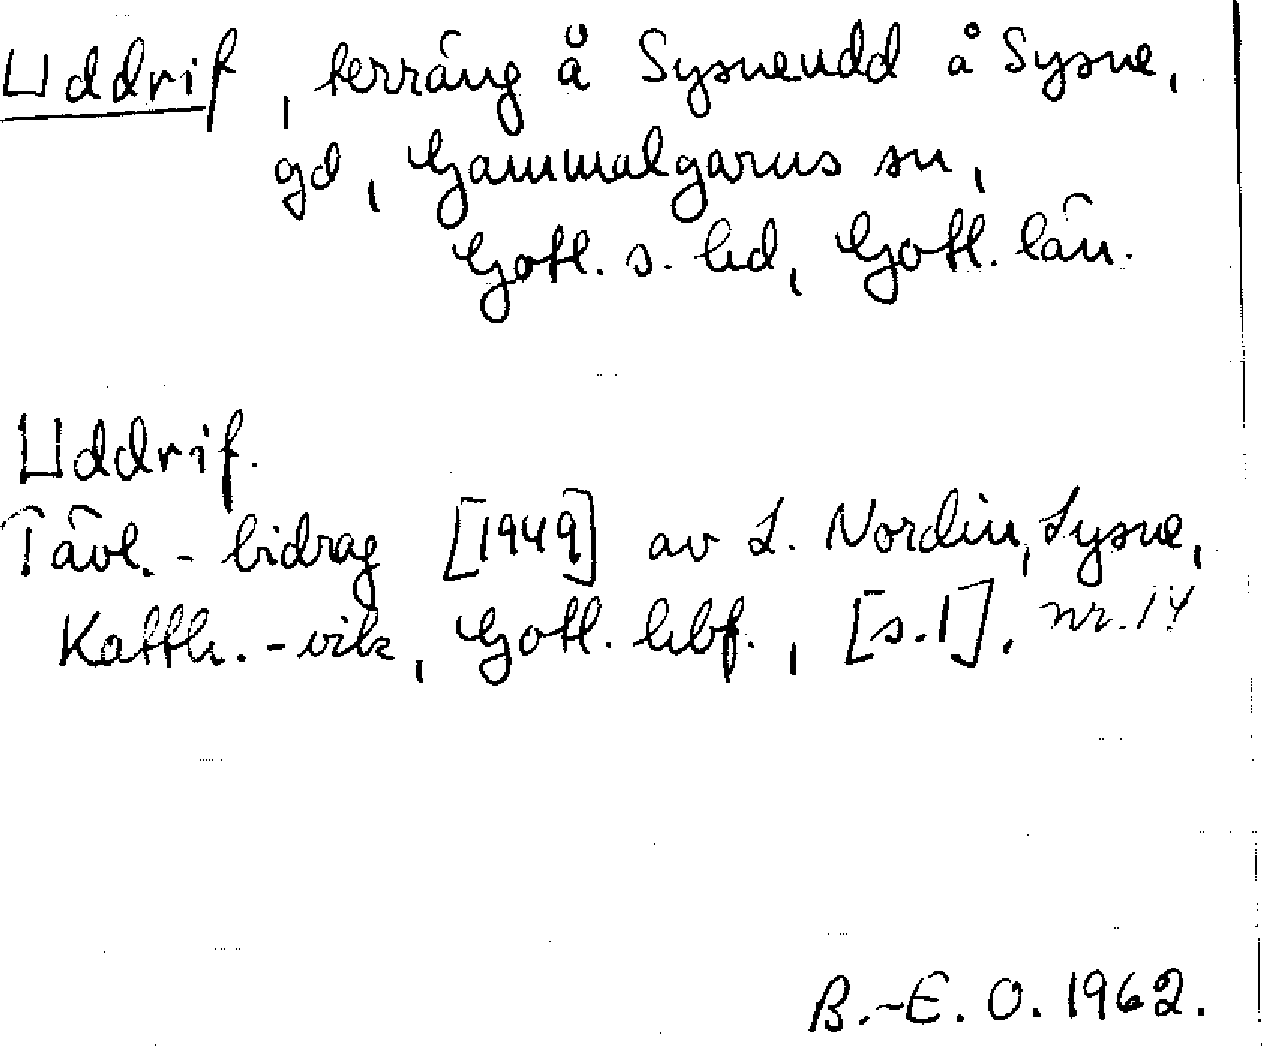 Uddrif, terräng å Sysneudd å Sysne,
gd, Gammalgarns sn,
Gotl. s. hd, Gotl. län.
Uddrif.
Tävl.-bidrag [1949] av L. Nordin, Sysne,
Katth.-vik, Gotl. hbf., [s. 1]. nr. 14
B.-E. O. 1962.